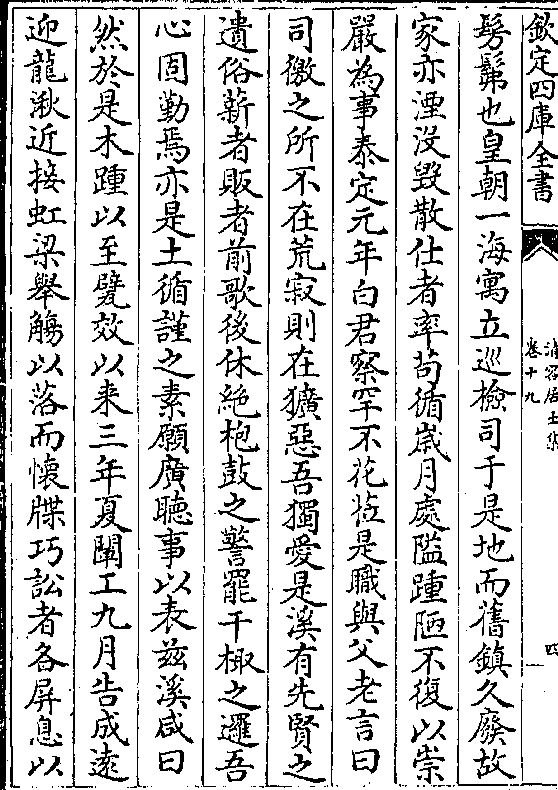 欽定四庫全書
卷十九
四
髣髴也皇朝一海㝢立巡檢司于是地而舊鎮久廢故
家亦湮没毀散仕者率苟循嵗月處隘踵陋不復以崇
嚴為事泰定元年白君察罕不花蒞是職與父老言曰
司徼之所不在荒寂則在獷惡吾獨愛是溪有先賢之
遺俗薪者販者前歌後休絶枹鼓之警罷干棷之邏吾
心固勤焉亦是土循謹之素願廣聽事以表兹溪咸曰
然於是木踵以至甓效以来三年夏鬪工九月告成逺
迎龍湫近接虹梁舉觴以落而懷牒巧訟者各屏息以